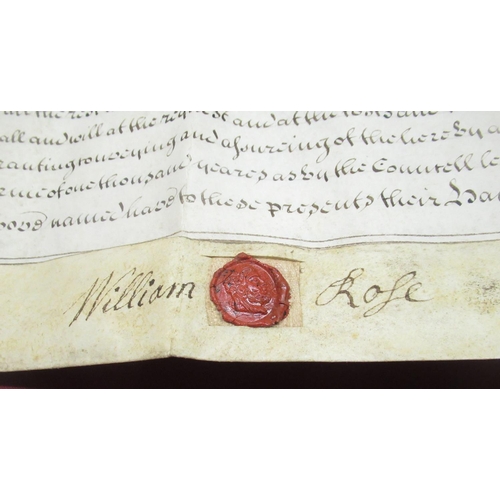 all and will at the request and at the
ranting conveying and assureing of the hereby
erme of one thousand yeares as by the Councell le
named have to these presents their
William Rose